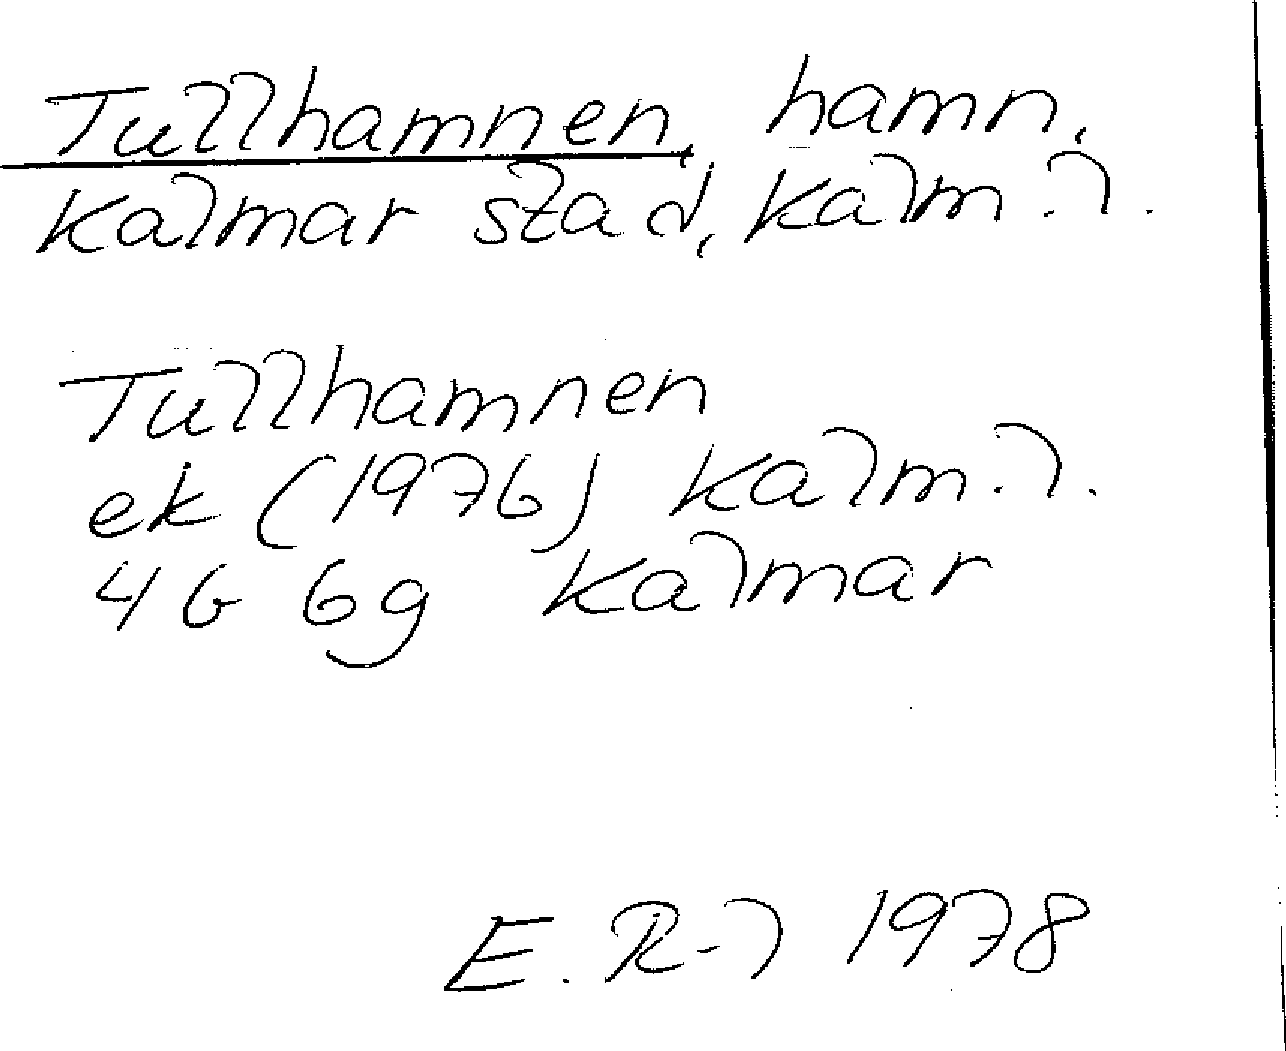 Tullhamnen, hamn,
Kalmar stad, Kalm. l.
Tullhamnen
ek (1976) Kalm. l.
4G 6g Kalmar
E. R-l 1978